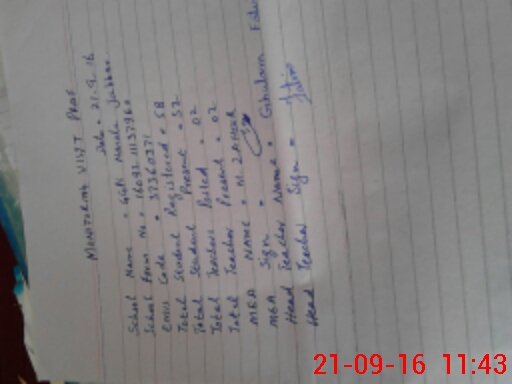 MONITORING VISIT PROS
Date = 21-9-16
School Name = GGPS Marala Jabbar
School Form No =
EMIS Code = 37360371
Total Student Registered = 58
Total Student Present = 52
Total Teachers Posted = 02
Total Teacher Present = 02
MEA NAME = M. ZAHEER
MEA Sign =
Head Teacher Name = Ghulam
Head Teacher Sign =
21-09-16 11:43